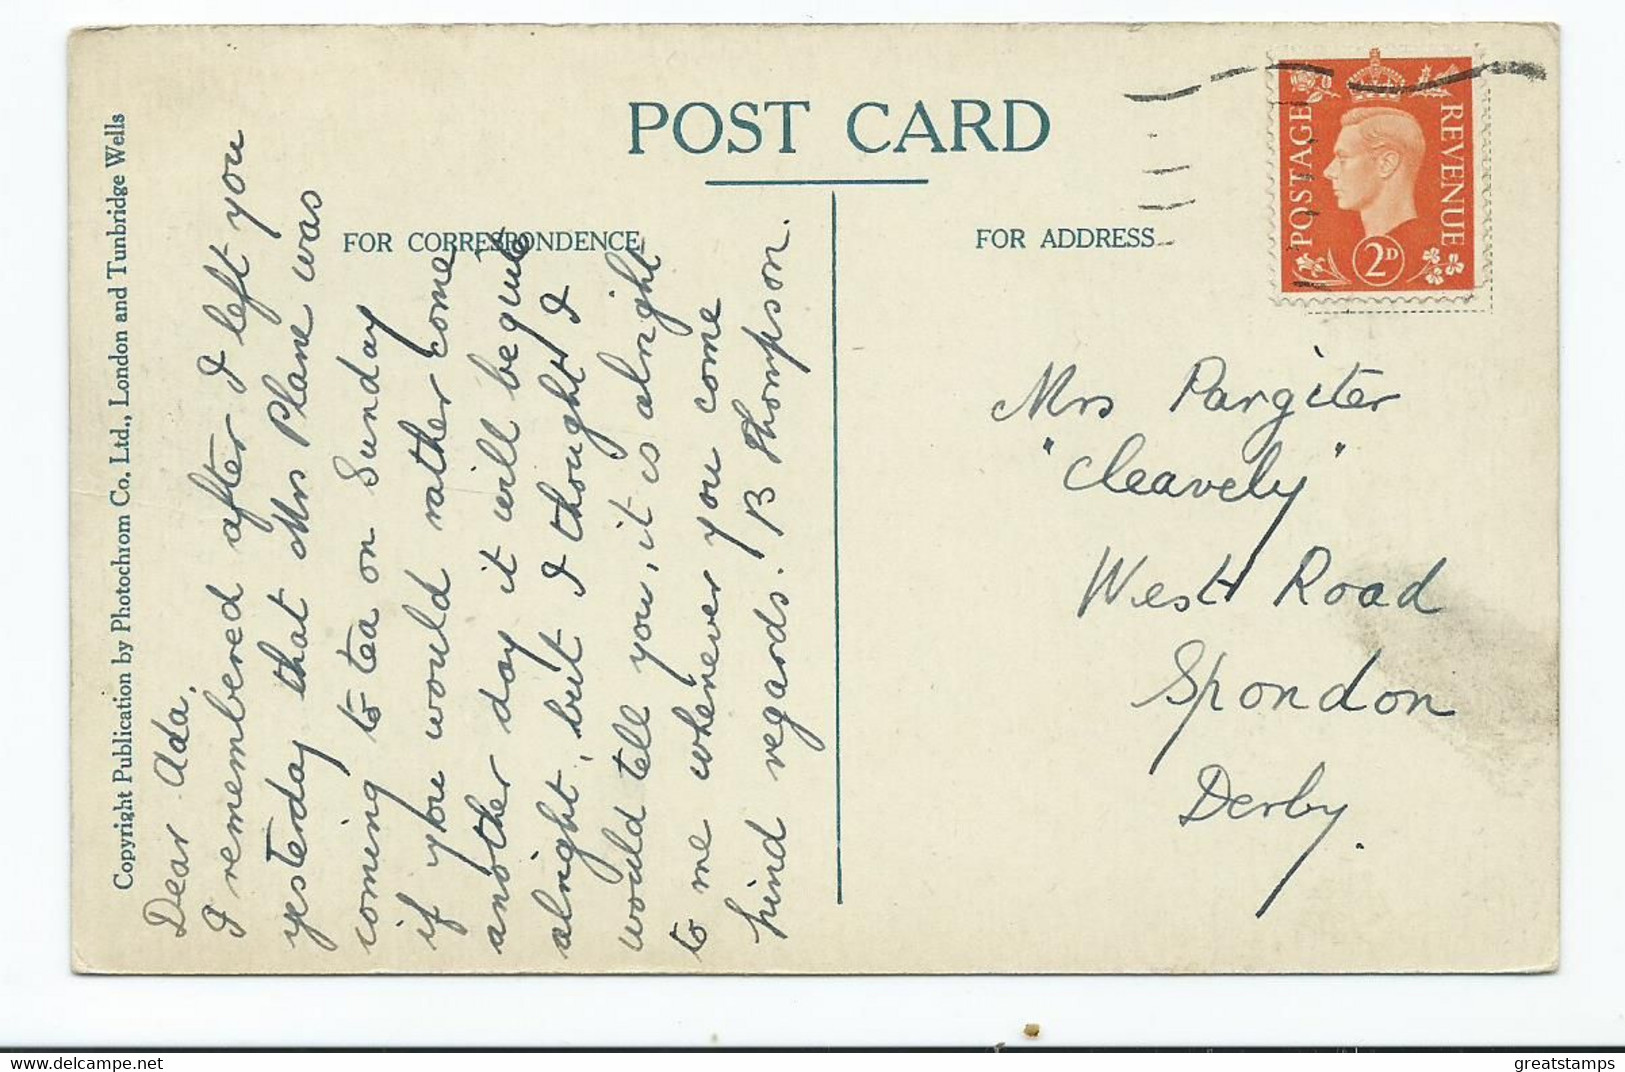 POST CARD
FOR CORRESPONDENCE
FOR ADDRESS
Copyright Publication by Photochrom Co., Ltd., London and Tunbridge Wells
Dear Ada,
I remembered after I left you
yesterday that Mrs Plane was
coming to tea on Sunday
if you would rather come
another day it will be quite
alright, but I thought I
would tell you, it is alright
to me whenever you come
kind regards. B Thompson.
POSTAGE
REVENUE
2D
Mrs Pargiter
"Cleavely"
West Road
Spondon
Derby.
www.delcampe.net
greatstamps